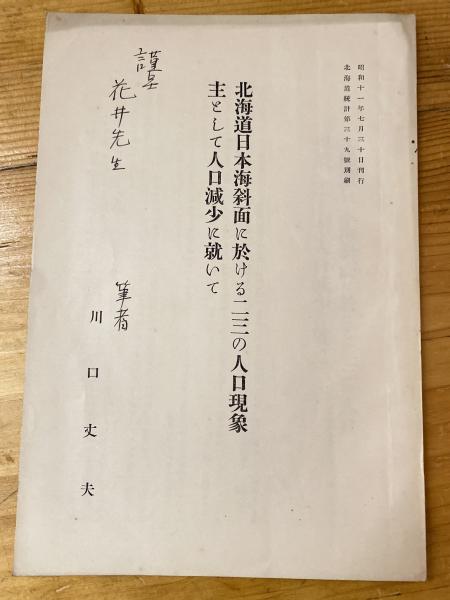 昭和十一年七月三十日刊行
北海道統計第三十九號別刷
北海道日本海斜面に於ける二三の人口現象
主として人口減少に就いて
謹呈
花井先生
筆者
川口丈夫